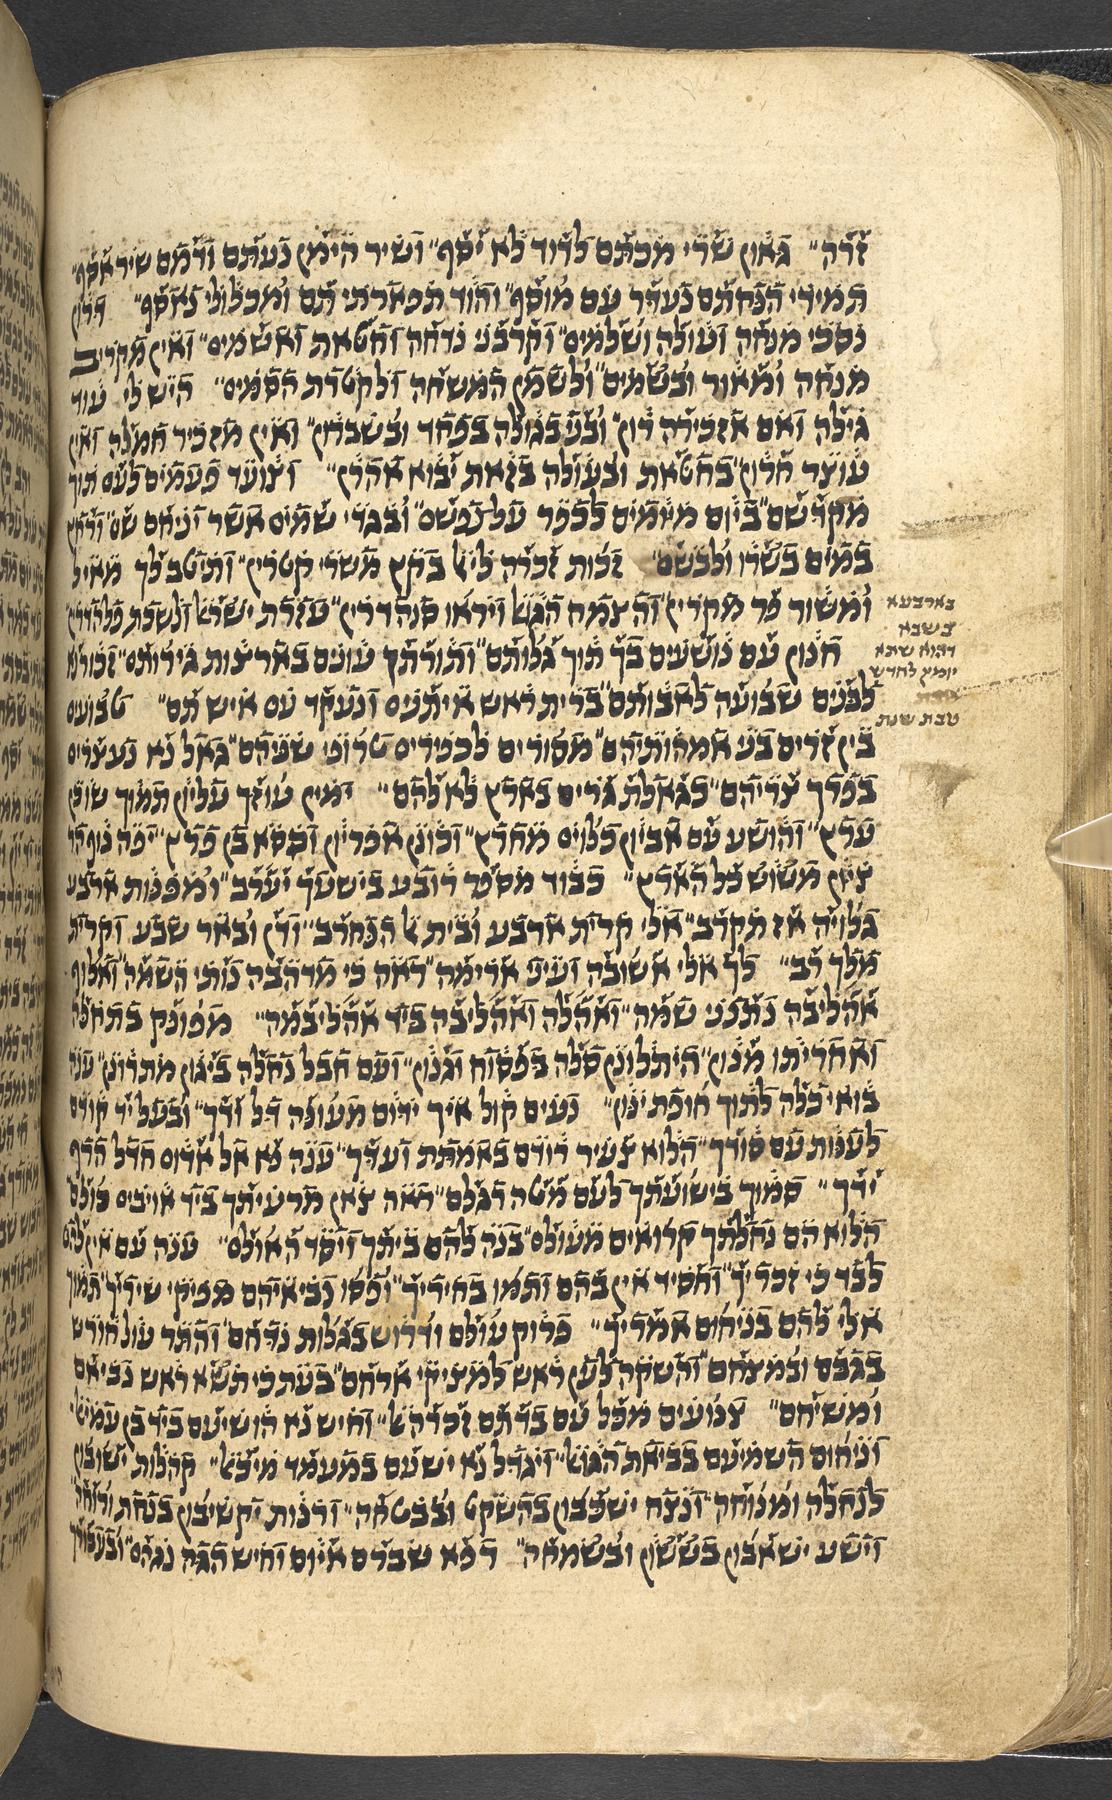 זרה״ גאון שרי מכתם לדוד לא יסף״ ושיר הימן נעתם ודמם שיר אסף״
תמידי הנחתם נעדר עם מוסף״ והוד תפארתי תם ומכלולי נאסף״
נסכי מנחה ועולה ושלמים״ וקרבני נדחה וחטאת ואשמים״ ואין מקריב
מנחה ומאור ובשמים״ ולשמן המשחה ולקטרת הסמים״ היש לי עוד
גילה ואם אזכירה רון״ ובני בגולה בפחד ובשברון״ ואין מזכיר חמלה ואין
עוצר חרון״ בחטאת ובעולה בזאת יבוא אהרן״ וצועד פעמים לעם תוך
מקדשם״ ביום מימים לכפר על נפשם״ ובגדי שמים אשר יניחם שם״ ורחץ
במים בשרו ולבשם״ זכות זכרה ליל בקץ משרי קטרין״ ותיטב לך
ומשור פר מקרין״ והצמח הגואל ויראו סנהדרין״ עזרת ישראל ולשכת פלהדרין״
חנון עם נושעים בך תוך גלותם״ ותורתך עונים בארצות גירותם״ זכור נא
לבנים שבועה לאבותם״ ברית ראש איתנים ונעקד עם איש תם״ טבועים
בין זרים בני אמהותיהם״ מסורים לכפירים טרופי שניהם״ גאל נא נעצרים
בפרך צריהם״ בגאלת גרים בארץ לא להם״ ימין עוזך עליון תמוך שוכן
ערץ״ והושע עם אביון כלוים מחרץ״ וכונן אפריון וכסא בן פרץ״ יפה נוף הר
ציון משוש כל הארץ״ כבוד מספר רובע בישעך יערב״ ומפנות ארבע
גלויה אז תקרב״ אלי קרית ארבע ובית אל הנחרב״ ודן ובאר שבע וקרית
מלך רב״ לך אלי אשובה ועיני ארימה״ ראה כי מדהבה נותי השמה״ ואלוף
אהליבה נתנני שמה״ ואהלה ואהליבה ביד אהליבמה״ מפונק בתחלה
ואחריתו מנון״ היתלונן סלה בפסוח וגנון״ ועם חבל נחלה ביגון מתרונן״ ענה
בואי כלה לתוך חופת ינון״ נעים קול איך ידום מעונה דל ידך״ ובעל יד קודם
לענות עם סודך״ הלוא צעיר רודם באמתת ועדך״ ענה נא אל אדום חדל הרף
ידך״ סמוך בישועתך לעם מטה רגלם״ ראה צאן מרעיתך ביד אויבים כולם״
הלוא הם נחלתך קרואים מעולם״ בנה להם ביתך ויסד האולם״ ענה עם אין להם
לבד כי זכריך״ וחסיד אין בהם ותמו בחיריך״ ופסו נביאיהם מפיקי שיריך״ תמוך
אלי להם בניחום אמריך״ פרוק עולם ודרוש בגלות נדחם״ והתר עול חורש
בגבם ובמצחם״ והשקה לען ראש למציקי ארחם״ בעת כי תשא ראש נביאם
ומשיחם״ צנועים מכל עם בדתם זכרה אל״ וחיש נא הושיעם ביד בן עמיאל
וניחום השמיעם בביאת הגואל״ ויגדל נא ישעם במעמד מיכאל״ קהלות ישובון
לנחלה ומנוחה״ ונצח ישכבון בהשקט ובבטחה״ ודנות יקשיבון בנחת ורוחה״
וישע ישאבון בששון ובשמחה״ רפא שברם איום וחיש הגה נגהם״
בארבעא
בשבא
דהוא שתא
יומין לחדש
טבת שנת